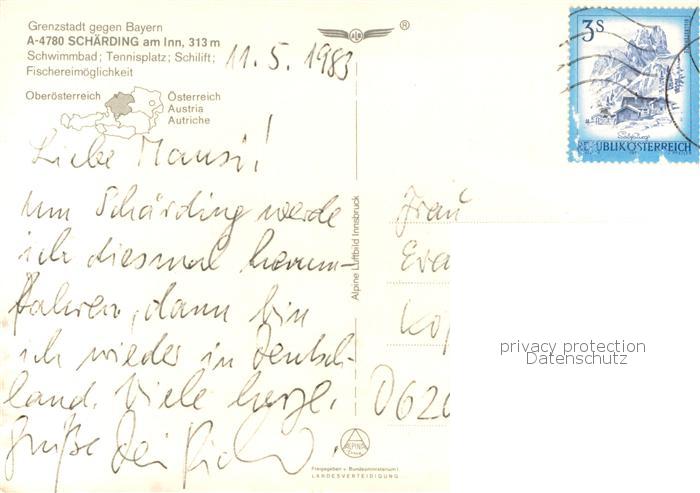 Grenzstadt gegen Bayern
A-4780 SCHÄRDING am Inn, 313 m
Schwimmbad; Tennisplatz; Schilift;
Fischereimöglichkeit
Oberösterreich
Österreich
Austria
Autriche
®
11. 5. 1983
3 S
REPUBLIK ÖSTERREICH
Liebe Mausi!
um Schärding werde
ich diesmal herum-
fahren, dann bin
ich wieder in Deutsch-
land. Viele herzl.
Grüße Dein
Alpine Luftbild Innsbruck
Frau
D 62
privacy protection
Datenschutz
ALPINE
Freigegeben v. Bundesministerium f.
LANDESVERTEIDIGUNG